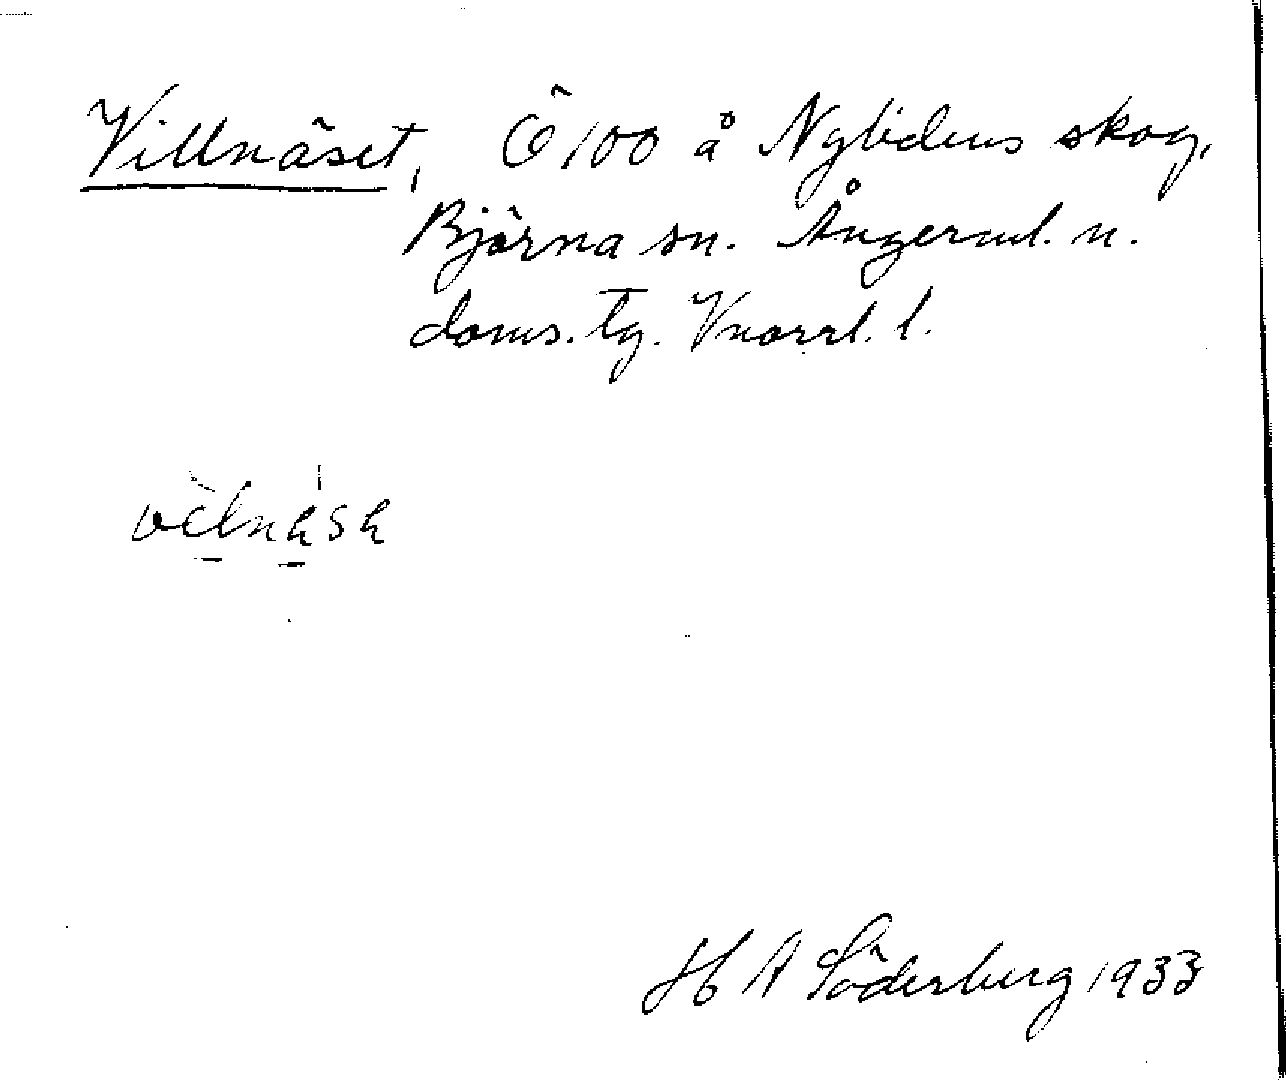 Villnäset, Ö 100 å Nylidens skog,
Björna sn. Ångerml. n.
doms. tg. Vnorrl. l.
H A Söderberg 1933